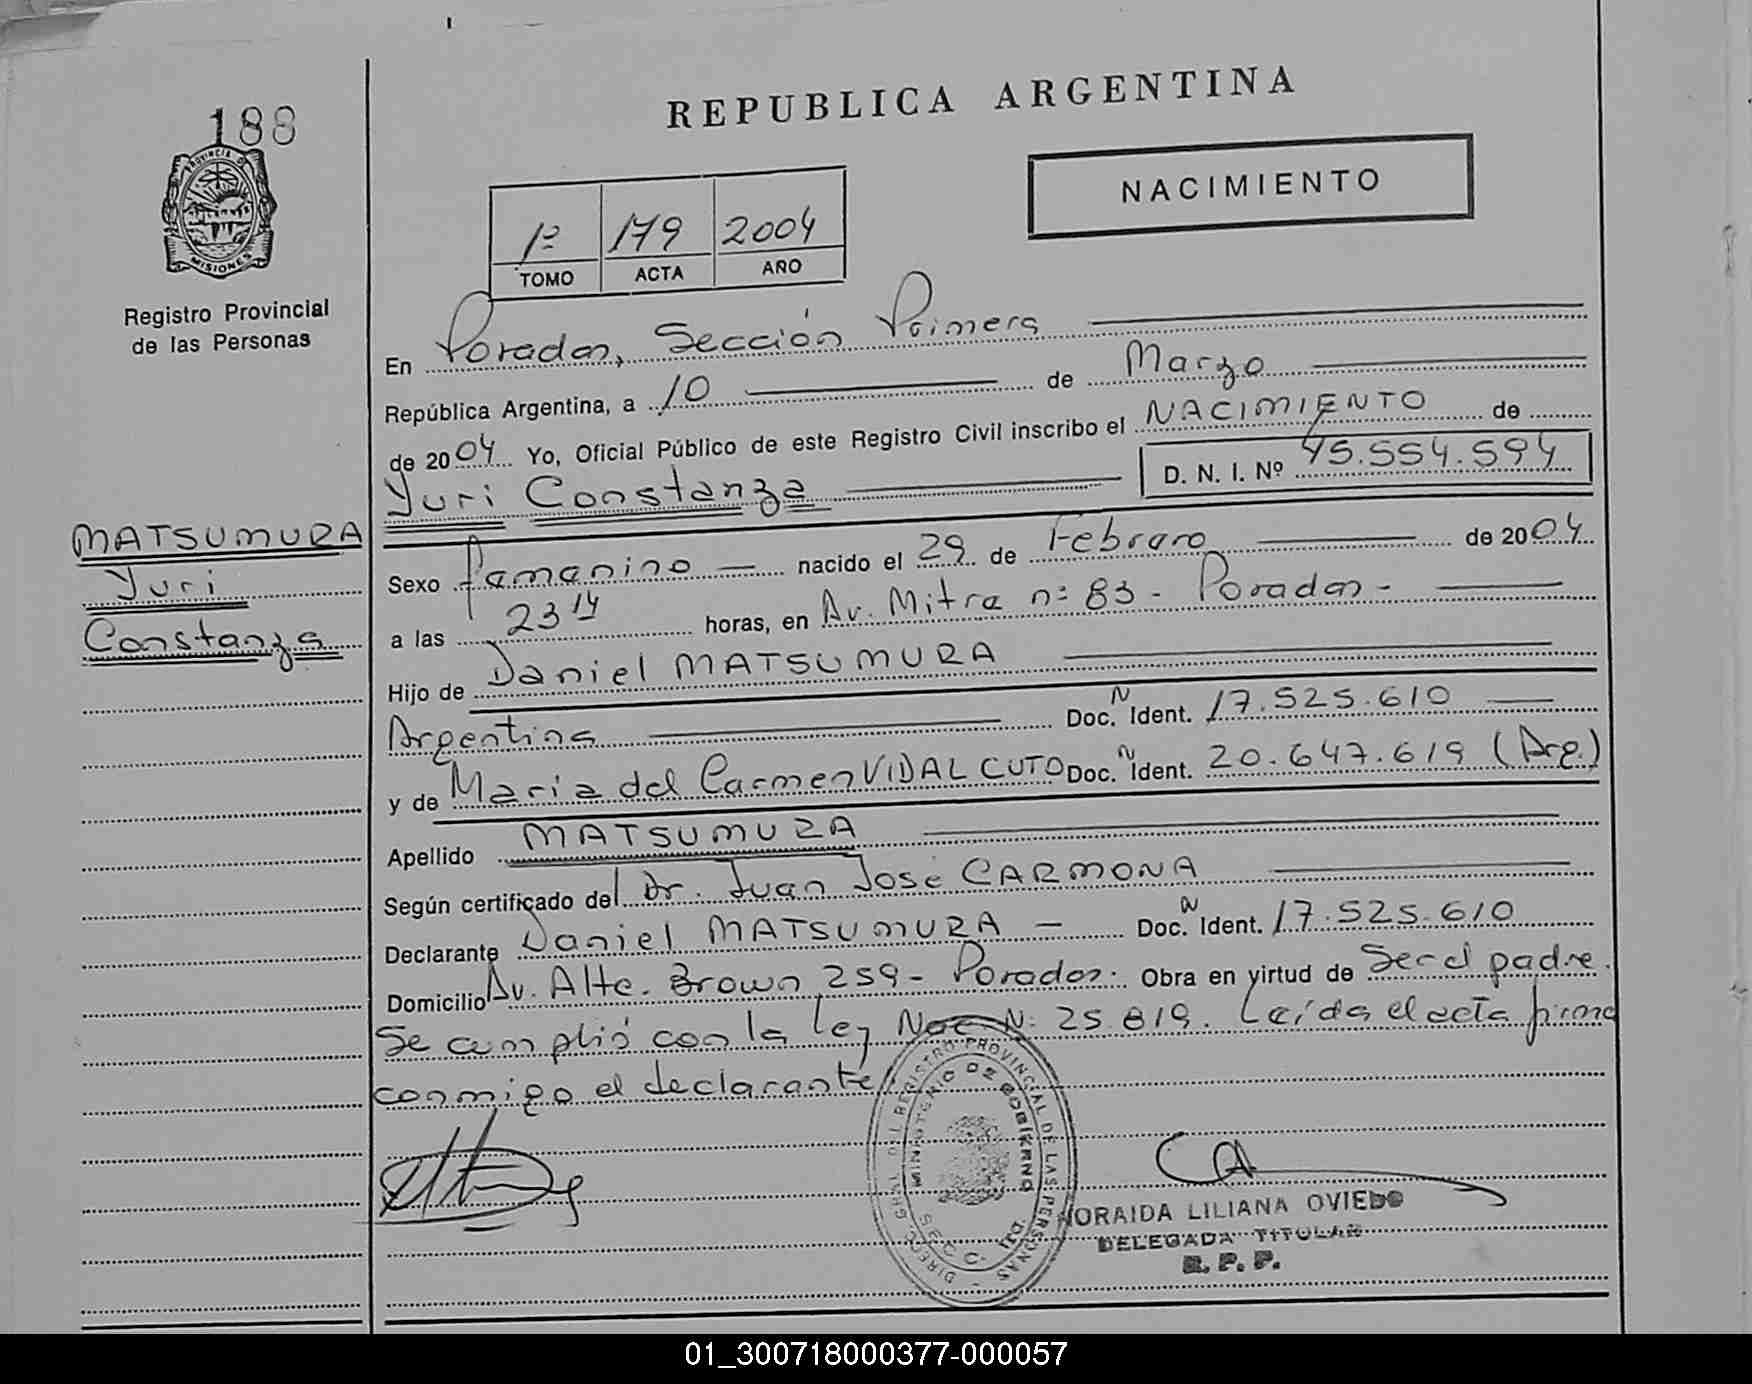 REPUBLICA ARGENTINA
188
PROVINCIA DE
MISIONES
Registro Provincial
de las Personas
NACIMIENTO
1º 179 2004
TOMO ACTA AÑO
En Posadas, Sección Primera
República Argentina, a 10 de Marzo
de 2004 Yo, Oficial Público de este Registro Civil inscribo el NACIMIENTO de
Yuri Constanza D. N. I. Nº 45.554.594
MATSUMURA
Yuri
Constanza
Sexo femenino nacido el 29 de Febrero de 2004
a las 23 14 horas, en Av. Mitre nº 83 - Posadas -
Hijo de Daniel MATSUMURA
Argentina Doc. N Ident. 17.525.610
y de Maria del Carmen VIDAL CUTO Doc. N Ident. 20.647.619 (Arg.)
Apellido MATSUMURA
Según certificado del Dr. Juan José CARMONA
Declarante Daniel MATSUMURA - Doc. N Ident. 17.525.610
Domicilio Av. Alte. Brown 259 - Posadas. Obra en virtud de Ser el padre.
Se cumplió con la ley Nac N: 25.819. Leída el acta firma
conmigo el declarante
DIRECC. GRAL. DEL REGISTRO PROVINCIAL DE LAS PERSONAS
MINISTERIO DE GOBIERNO
SECC. 1RA.
NORAIDA LILIANA OVIEDO
DELEGADA TITULAR
R. P. P.
01_300718000377-000057